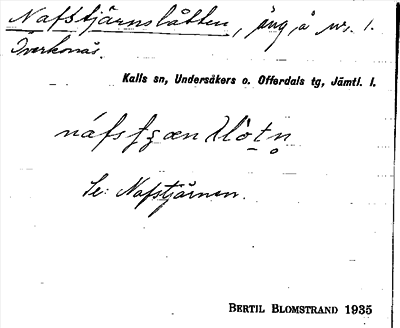 Nafstjärnslåtten, äng å nr. 1.
Överkonäs.
Kalls sn, Undersåkers o. Offerdals tg, Jämtl. l.
Se: Nafstjärnen.
BERTIL BLOMSTRAND 1935